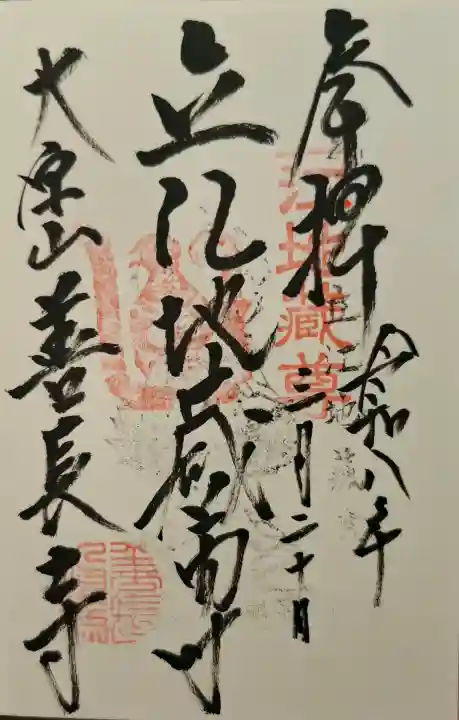 奉拝
令和八年
三月二十日
立江地蔵尊
大原山善長寺
立江地蔵尊